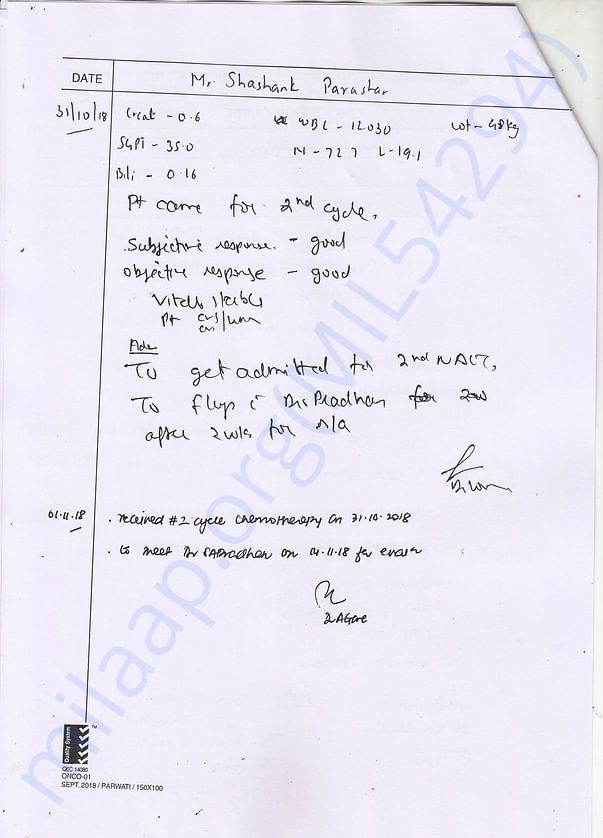 DATE
Mr. Shashank Parashar
31/10/18
Creat - 0.6 WBC - 12030 wt - 48kg
SGPT - 35.0 N - 72.7 L - 19.1
Bili - 0.16
Pt came for 2nd cycle.
Subjective response - good
objective response - good
Vitals stable
Pt
Adv
To get admitted for 2nd NACT,
To f/up c Dr Pradhan
after 2wks for
01.11.18
. received #2 cycle chemotherapy on 31.10.2018
. to meet Dr SAPradhan on 14.11.18 for
milaap.org(MIL54294)
Quality System
TM
QEC 14080
ONCO-01
SEPT. 2018 / PARWATI / 150X100